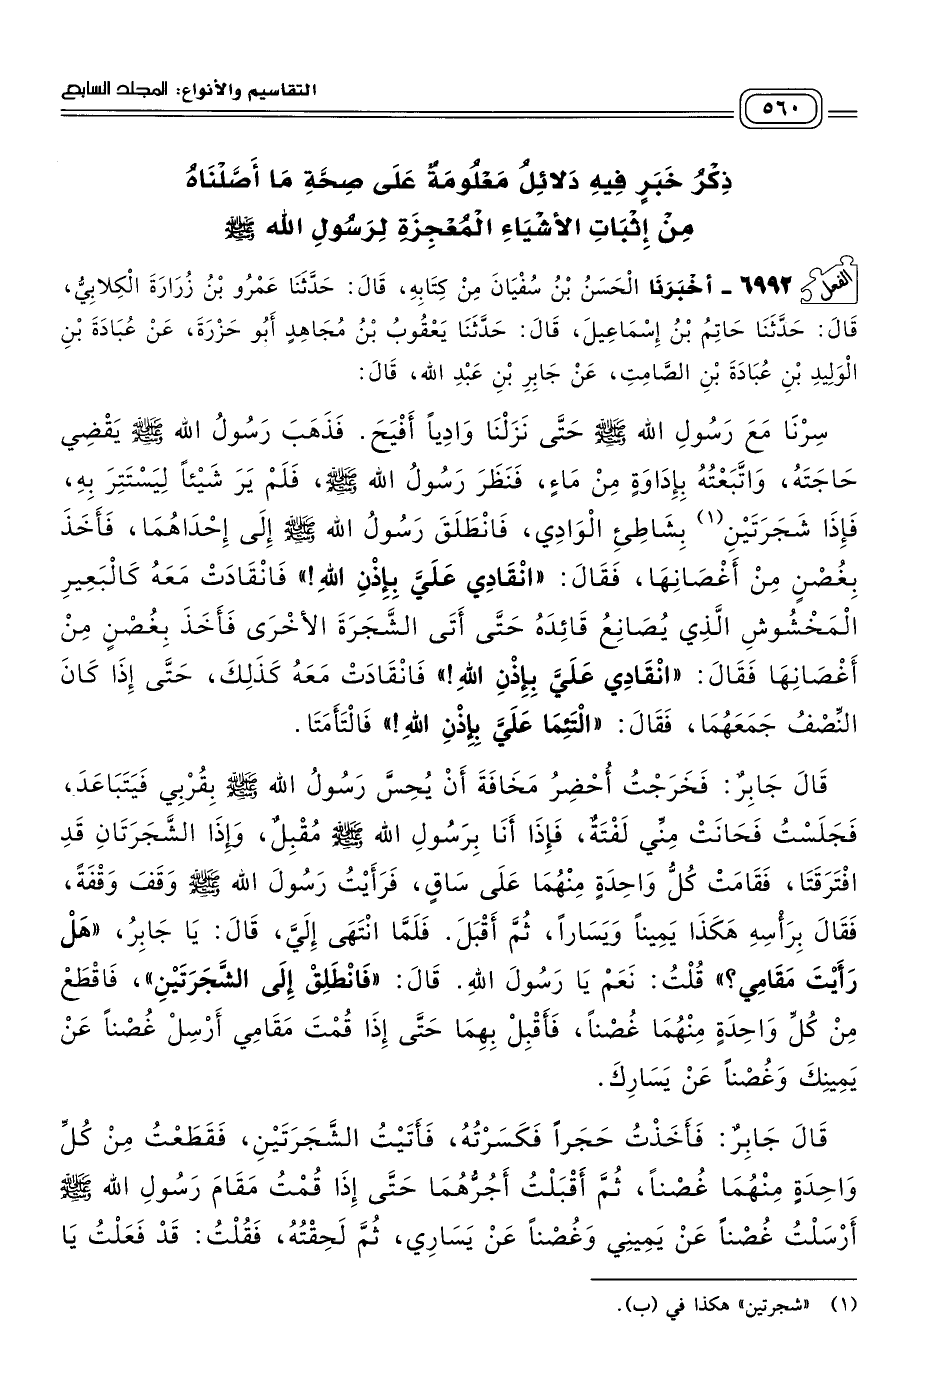 التقاسيم والأنواع: المجلد السابع
٥٦٠
ذِكْرُ خَبَرٍ فِيهِ دَلائِلُ مَعْلُومَةٌ عَلَى صِحَّةِ مَا أَصَّلْنَاهُ
مِنْ إِثْبَاتِ الأشْيَاءِ الْمُعْجِزَةِ لِرَسُولِ الله ﷺ
الفعل ٦٩٩٢ ـ أخْبَرَنَا الْحَسَنُ بْنُ سُفْيَانَ مِنْ كِتَابِهِ، قَالَ: حَدَّثَنَا عَمْرُو بْنُ زُرَارَةَ الْكِلابِيُّ،
قَالَ: حَدَّثَنَا حَاتِمُ بْنُ إِسْمَاعِيلَ، قَالَ: حَدَّثَنَا يَعْقُوبُ بْنُ مُجَاهِدٍ أَبُو حَزْرَةَ، عَنْ عُبَادَةَ بْنِ
الْوَلِيدِ بْنِ عُبَادَةَ بْنِ الصَّامِتِ، عَنْ جَابِرِ بْنِ عَبْدِ الله، قَالَ:
سِرْنَا مَعَ رَسُولِ الله ﷺ حَتَّى نَزَلْنَا وَادِياً أَفْيَحَ. فَذَهَبَ رَسُولُ الله ﷺ يَقْضِي
حَاجَتَهُ، وَاتَّبَعْتُهُ بِإِدَاوَةٍ مِنْ مَاءٍ، فَنَظَرَ رَسُولُ الله ﷺ، فَلَمْ يَرَ شَيْئاً لِيَسْتَتِرَ بِهِ،
فَإِذَا شَجَرَتَيْنِ(١) بِشَاطِئِ الْوَادِي، فَانْطَلَقَ رَسُولُ الله ﷺ إِلَى إِحْدَاهُمَا، فَأَخَذَ
بِغُصْنٍ مِنْ أَغْصَانِهَا، فَقَالَ: «انْقَادِي عَلَيَّ بِإِذْنِ اللهِ!» فَانْقَادَتْ مَعَهُ كَالْبَعِيرِ
الْمَخْشُوشِ الَّذِي يُصَانِعُ قَائِدَهُ حَتَّى أَتَى الشَّجَرَةَ الأخْرَى فَأَخَذَ بِغُصْنٍ مِنْ
أَغْصَانِهَا فَقَالَ: «انْقَادِي عَلَيَّ بِإِذْنِ اللهِ!» فَانْقَادَتْ مَعَهُ كَذَلِكَ، حَتَّى إِذَا كَانَ
النِّصْفُ جَمَعَهُمَا، فَقَالَ: «الْتَئِمَا عَلَيَّ بِإِذْنِ اللهِ!» فَالْتَأَمَتَا.
قَالَ جَابِرٌ: فَخَرَجْتُ أُحْضِرُ مَخَافَةَ أَنْ يُحِسَّ رَسُولُ الله ﷺ بِقُرْبِي فَيَتَبَاعَدَ،
فَجَلَسْتُ فَحَانَتْ مِنِّي لَفْتَةٌ، فَإِذَا أَنَا بِرَسُولِ الله ﷺ مُقْبِلٌ، وَإِذَا الشَّجَرَتَانِ قَدِ
افْتَرَقَتَا، فَقَامَتْ كُلُّ وَاحِدَةٍ مِنْهُمَا عَلَى سَاقٍ، فَرَأَيْتُ رَسُولَ الله ﷺ وَقَفَ وَقْفَةً،
فَقَالَ بِرَأْسِهِ هَكَذَا يَمِيناً وَيَسَاراً، ثُمَّ أَقْبَلَ. فَلَمَّا انْتَهَى إِلَيَّ، قَالَ: يَا جَابِرُ، «هَلْ
رَأَيْتَ مَقَامِي؟» قُلْتُ: نَعَمْ يَا رَسُولَ اللهِ. قَالَ: «فَانْطَلِقْ إِلَى الشَّجَرَتَيْنِ»، فَاقْطَعْ
مِنْ كُلِّ وَاحِدَةٍ مِنْهُمَا غُصْناً، فَأَقْبِلْ بِهِمَا حَتَّى إِذَا قُمْتَ مَقَامِي أَرْسِلْ غُصْناً عَنْ
يَمِينِكَ وَغُصْناً عَنْ يَسَارِكَ.
قَالَ جَابِرٌ: فَأَخَذْتُ حَجَراً فَكَسَرْتُهُ، فَأَتَيْتُ الشَّجَرَتَيْنِ، فَقَطَعْتُ مِنْ كُلِّ
وَاحِدَةٍ مِنْهُمَا غُصْناً، ثُمَّ أَقْبَلْتُ أَجُرُّهُمَا حَتَّى إِذَا قُمْتُ مَقَامَ رَسُولِ الله ﷺ
أَرْسَلْتُ غُصْناً عَنْ يَمِينِي وَغُصْناً عَنْ يَسَارِي، ثُمَّ لَحِقْتُهُ، فَقُلْتُ: قَدْ فَعَلْتُ يَا
(١) «شجرتين» هكذا في (ب).